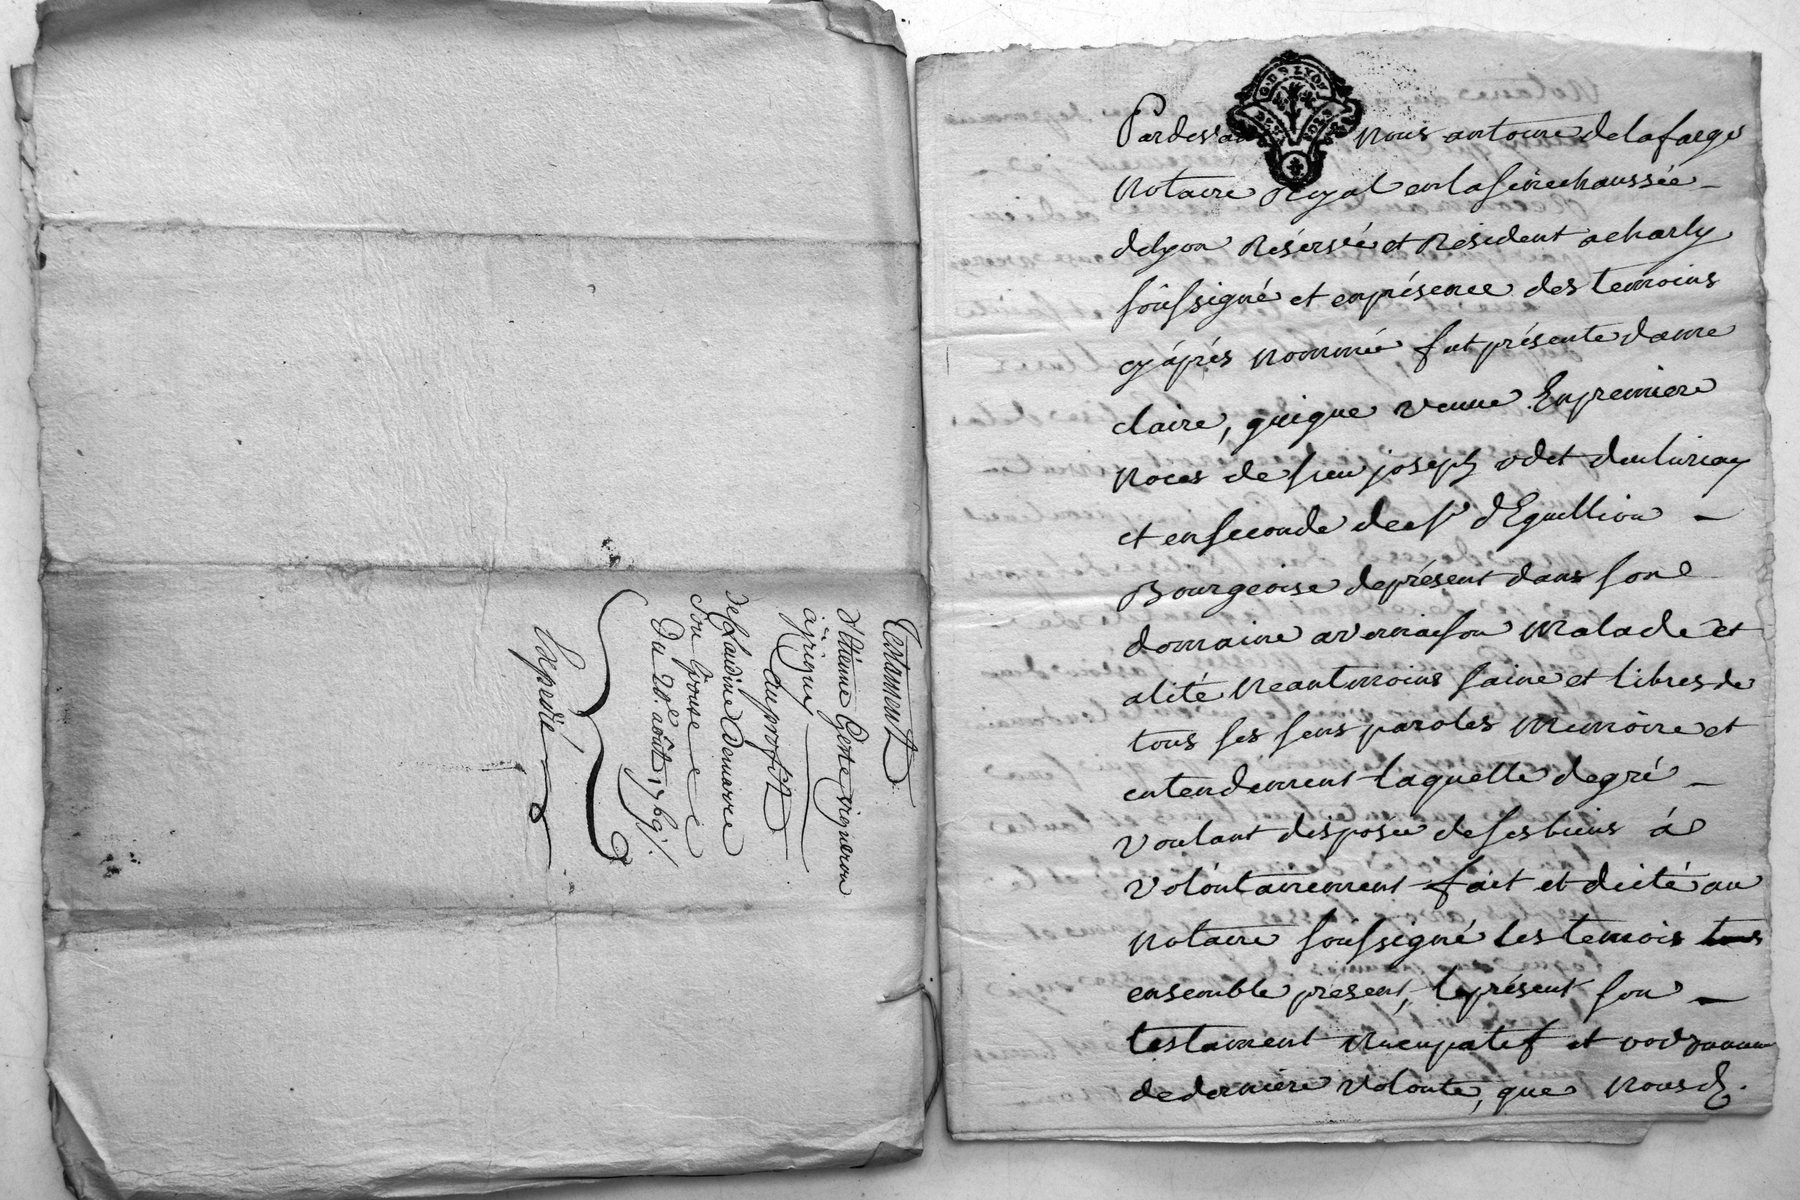 Testament
d'Etienne Geste vigneron
a jrigny
au proffit
de Claudine Demarre
son Epouse
Du 28e août 1769
Expedié
G. D. S. LYON
Pardevant Nous antoine delafarge
Notaire Royal en la sénéchaussée
delyon Résérvé et Résident a charly
soussigné et enprésence des temoins
cy áprés Nommé fut présente dame
claire, guigue veuve Enpremiere
Noces de sieur joseph odet
et enseconde de sr d'Eguillion
Bourgeoise deprésent dans son
domaine a vernaison Malade et
alité Neantmoins saine et libres de
tous ses sens paroles Memoire et
entendement laquelle degré
voulant disposée desesbiens á
volontairement fait et dicté au
Notaire soussigné les temois tous
ensemble présent, leprésent son
testament Nuncupatif et ordonnance
dederniere volonté, que Nousd.